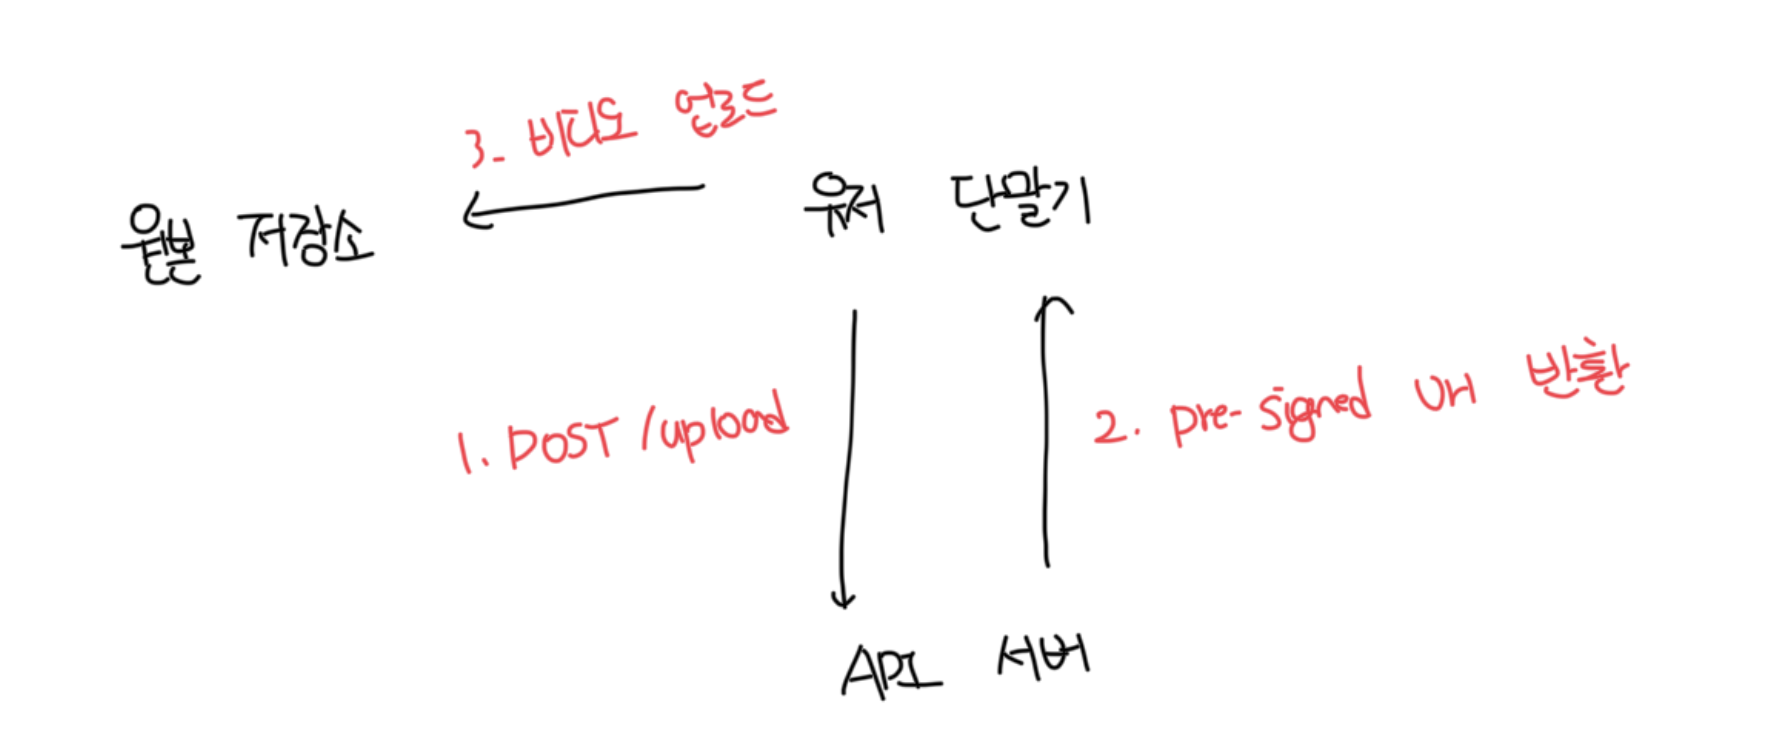 3. 비디오 업로드
원본 저장소
유저 단말기
1. POST /upload
2. pre-signed url 반환
API 서버